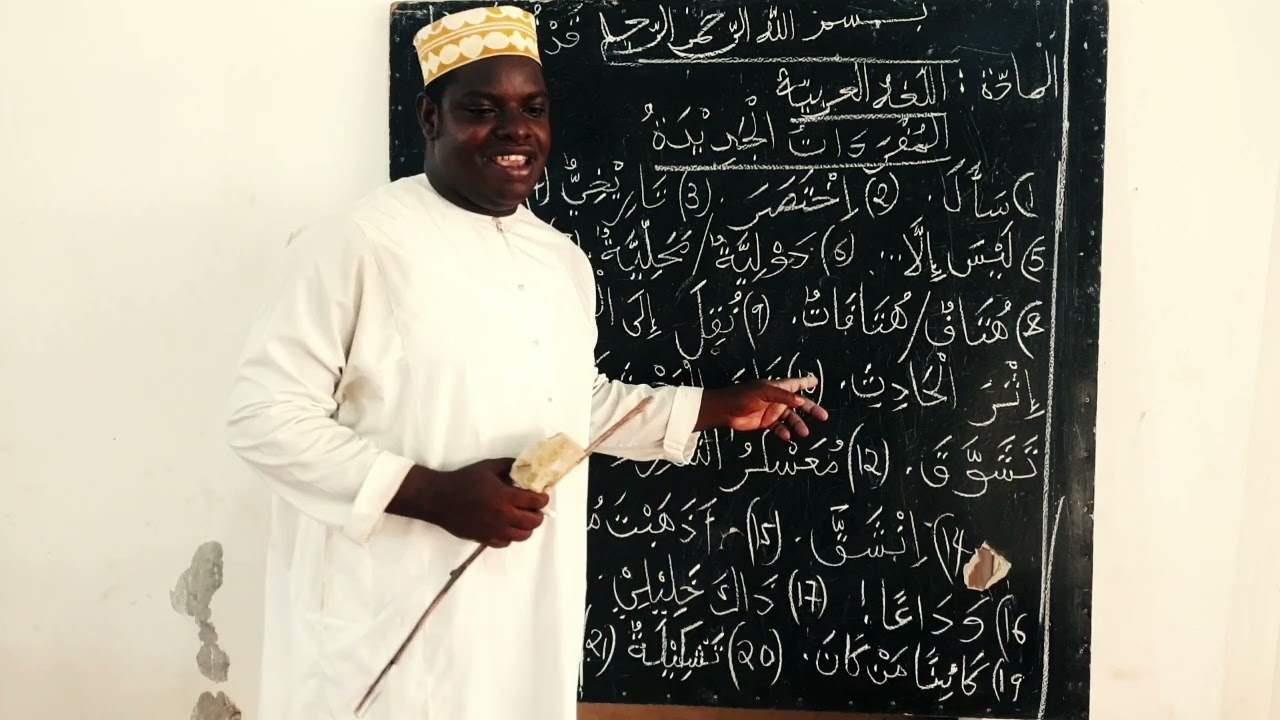 بسم الله الرحمن الرحيم
المادّة : اللّغة العربيّة
المُفْرَدَاتُ الْجَدِيْدَةُ
1) سَأَلَ. 2) اِخْتَصَرَ. 3) تَارِيْخِيٌّ
5) لَيْسَ إِلَّا... 6) دَوْلِيَّةٌ/مَحَلِّيَّةٌ
8) هُتَافٌ/هُتَافَاتٌ. 9) نُقِلَ إِلَى
إِثْرَ الْحَادِثِ. 10)
تَشَوَّقَ. 12) مُعَسْكَرُ
14) اِنْشَقَّ. 15) أَذَهَبْتَ
16) وَدَاعًا! 17) ذَاكَ خَلِيْلِيْ
19) كَائِنًا مَنْ كَانَ. 20) تَشْكِيْلَةٌ 21)